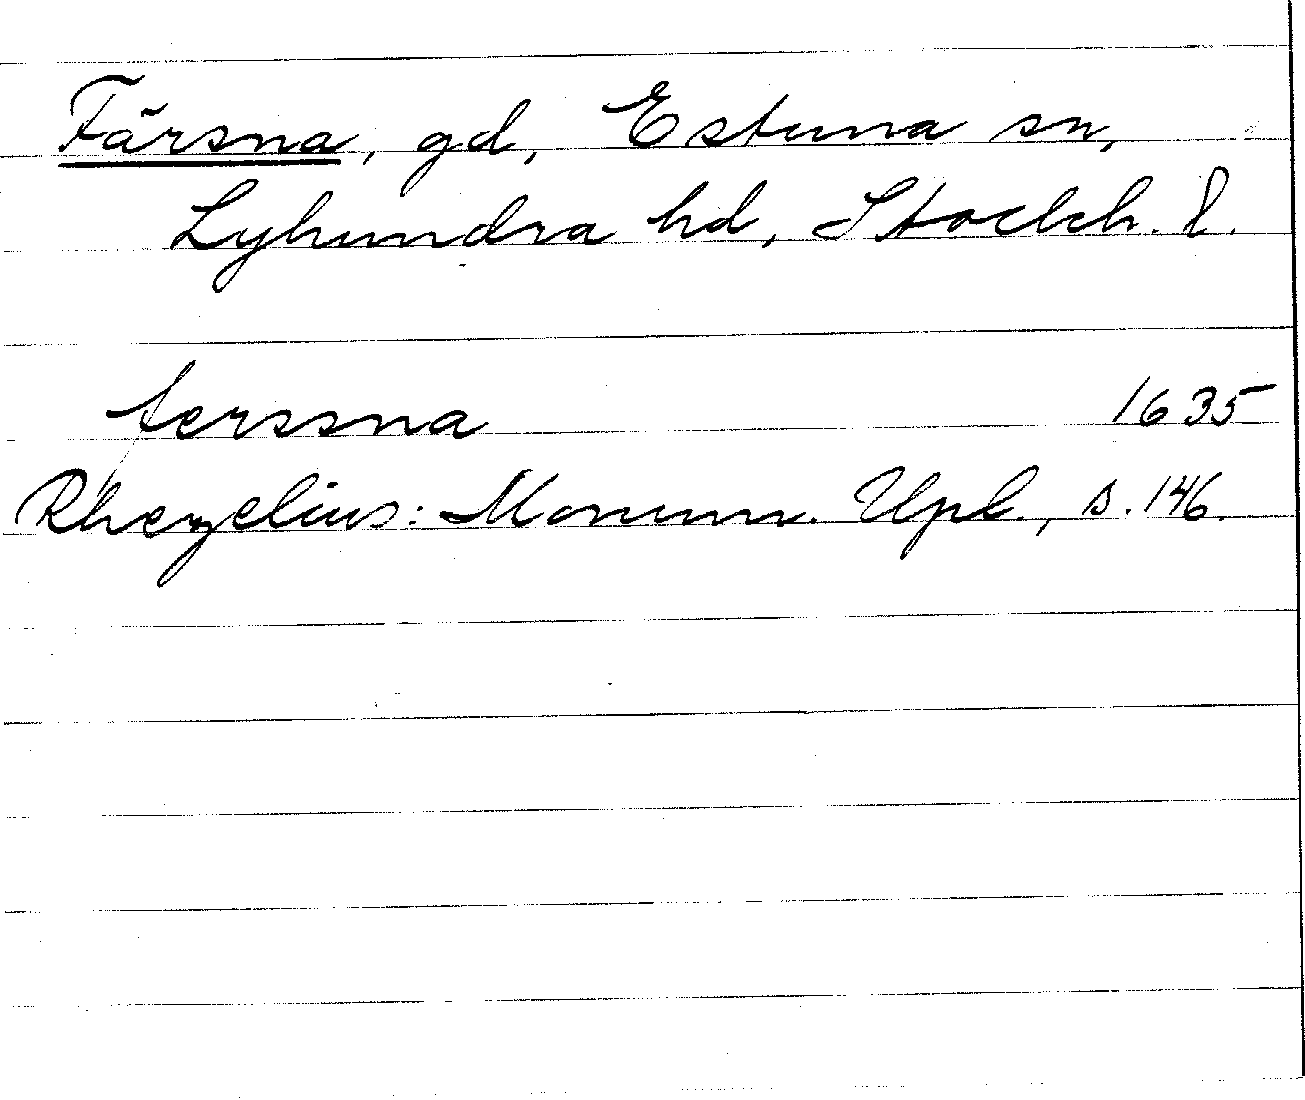 Färsna, gd, Estuna sn,
Lyhundra hd, Stockh. l.
ferssna 1635
Rhezelius: Monum. Upl., s. 146.